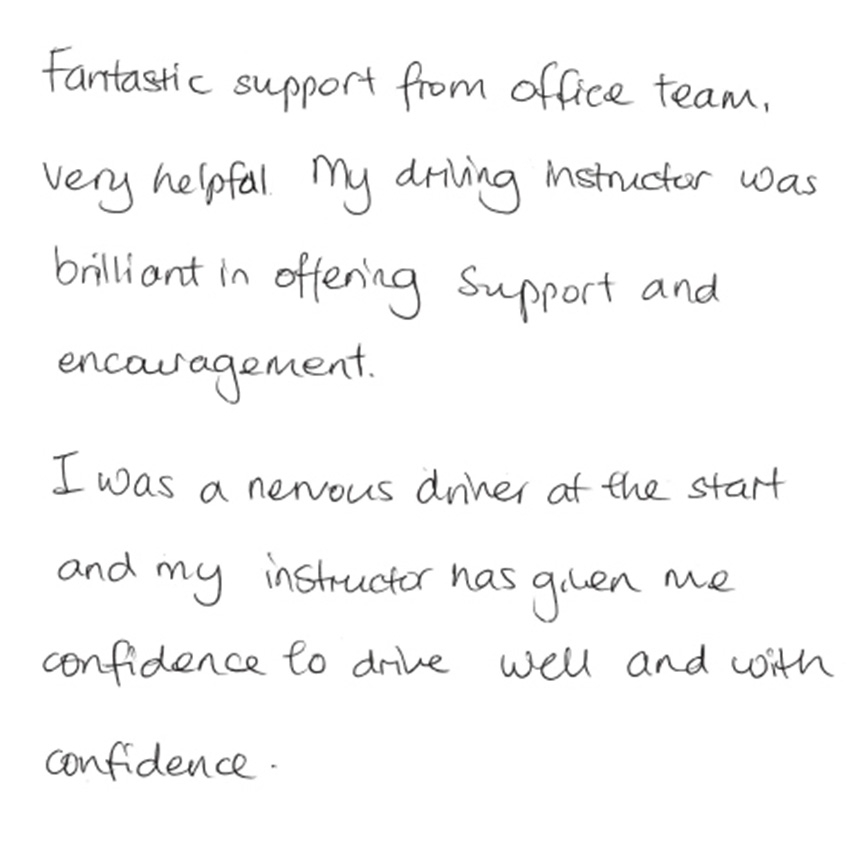 Fantastic support from office team,
very helpful. My driving instructor was
brilliant in offering support and
encouragement.
I was a nervous driver at the start
and my instructor has given me
confidence to drive well and with
confidence.